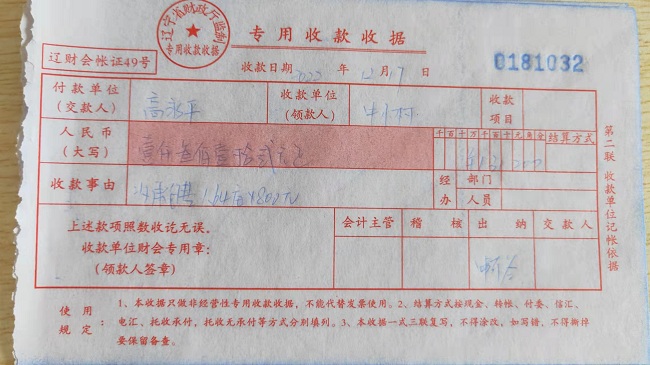 辽宁省财政厅监制
专用收款收据
专用收款收据
辽财会帐证49号
收款日期 2022 年 12 月 7 日
0181032
付款单位
(交款人)
高永平
收款单位
(领款人)
收款
项目
人民币
(大写)
壹仟叁佰壹拾贰元
千百十万千百十元角分
结算方式
收款事由
经办
部门
人员
上述款项照数收讫无误。
收款单位财会专用章:
(领款人签章)
会计主管
稽核
出纳
交款人
第二联 收款单位记帐依据
使用规定:
1、本收据只做非经营性专用收款收据,不能代替发票使用。2、结算方式按现金、转帐、付委、信汇、
电汇、托收承付,托收无承付等方式分别填列。3、本收据一式三联复写,不得涂改,如写错,不得撕掉
要保留备查。